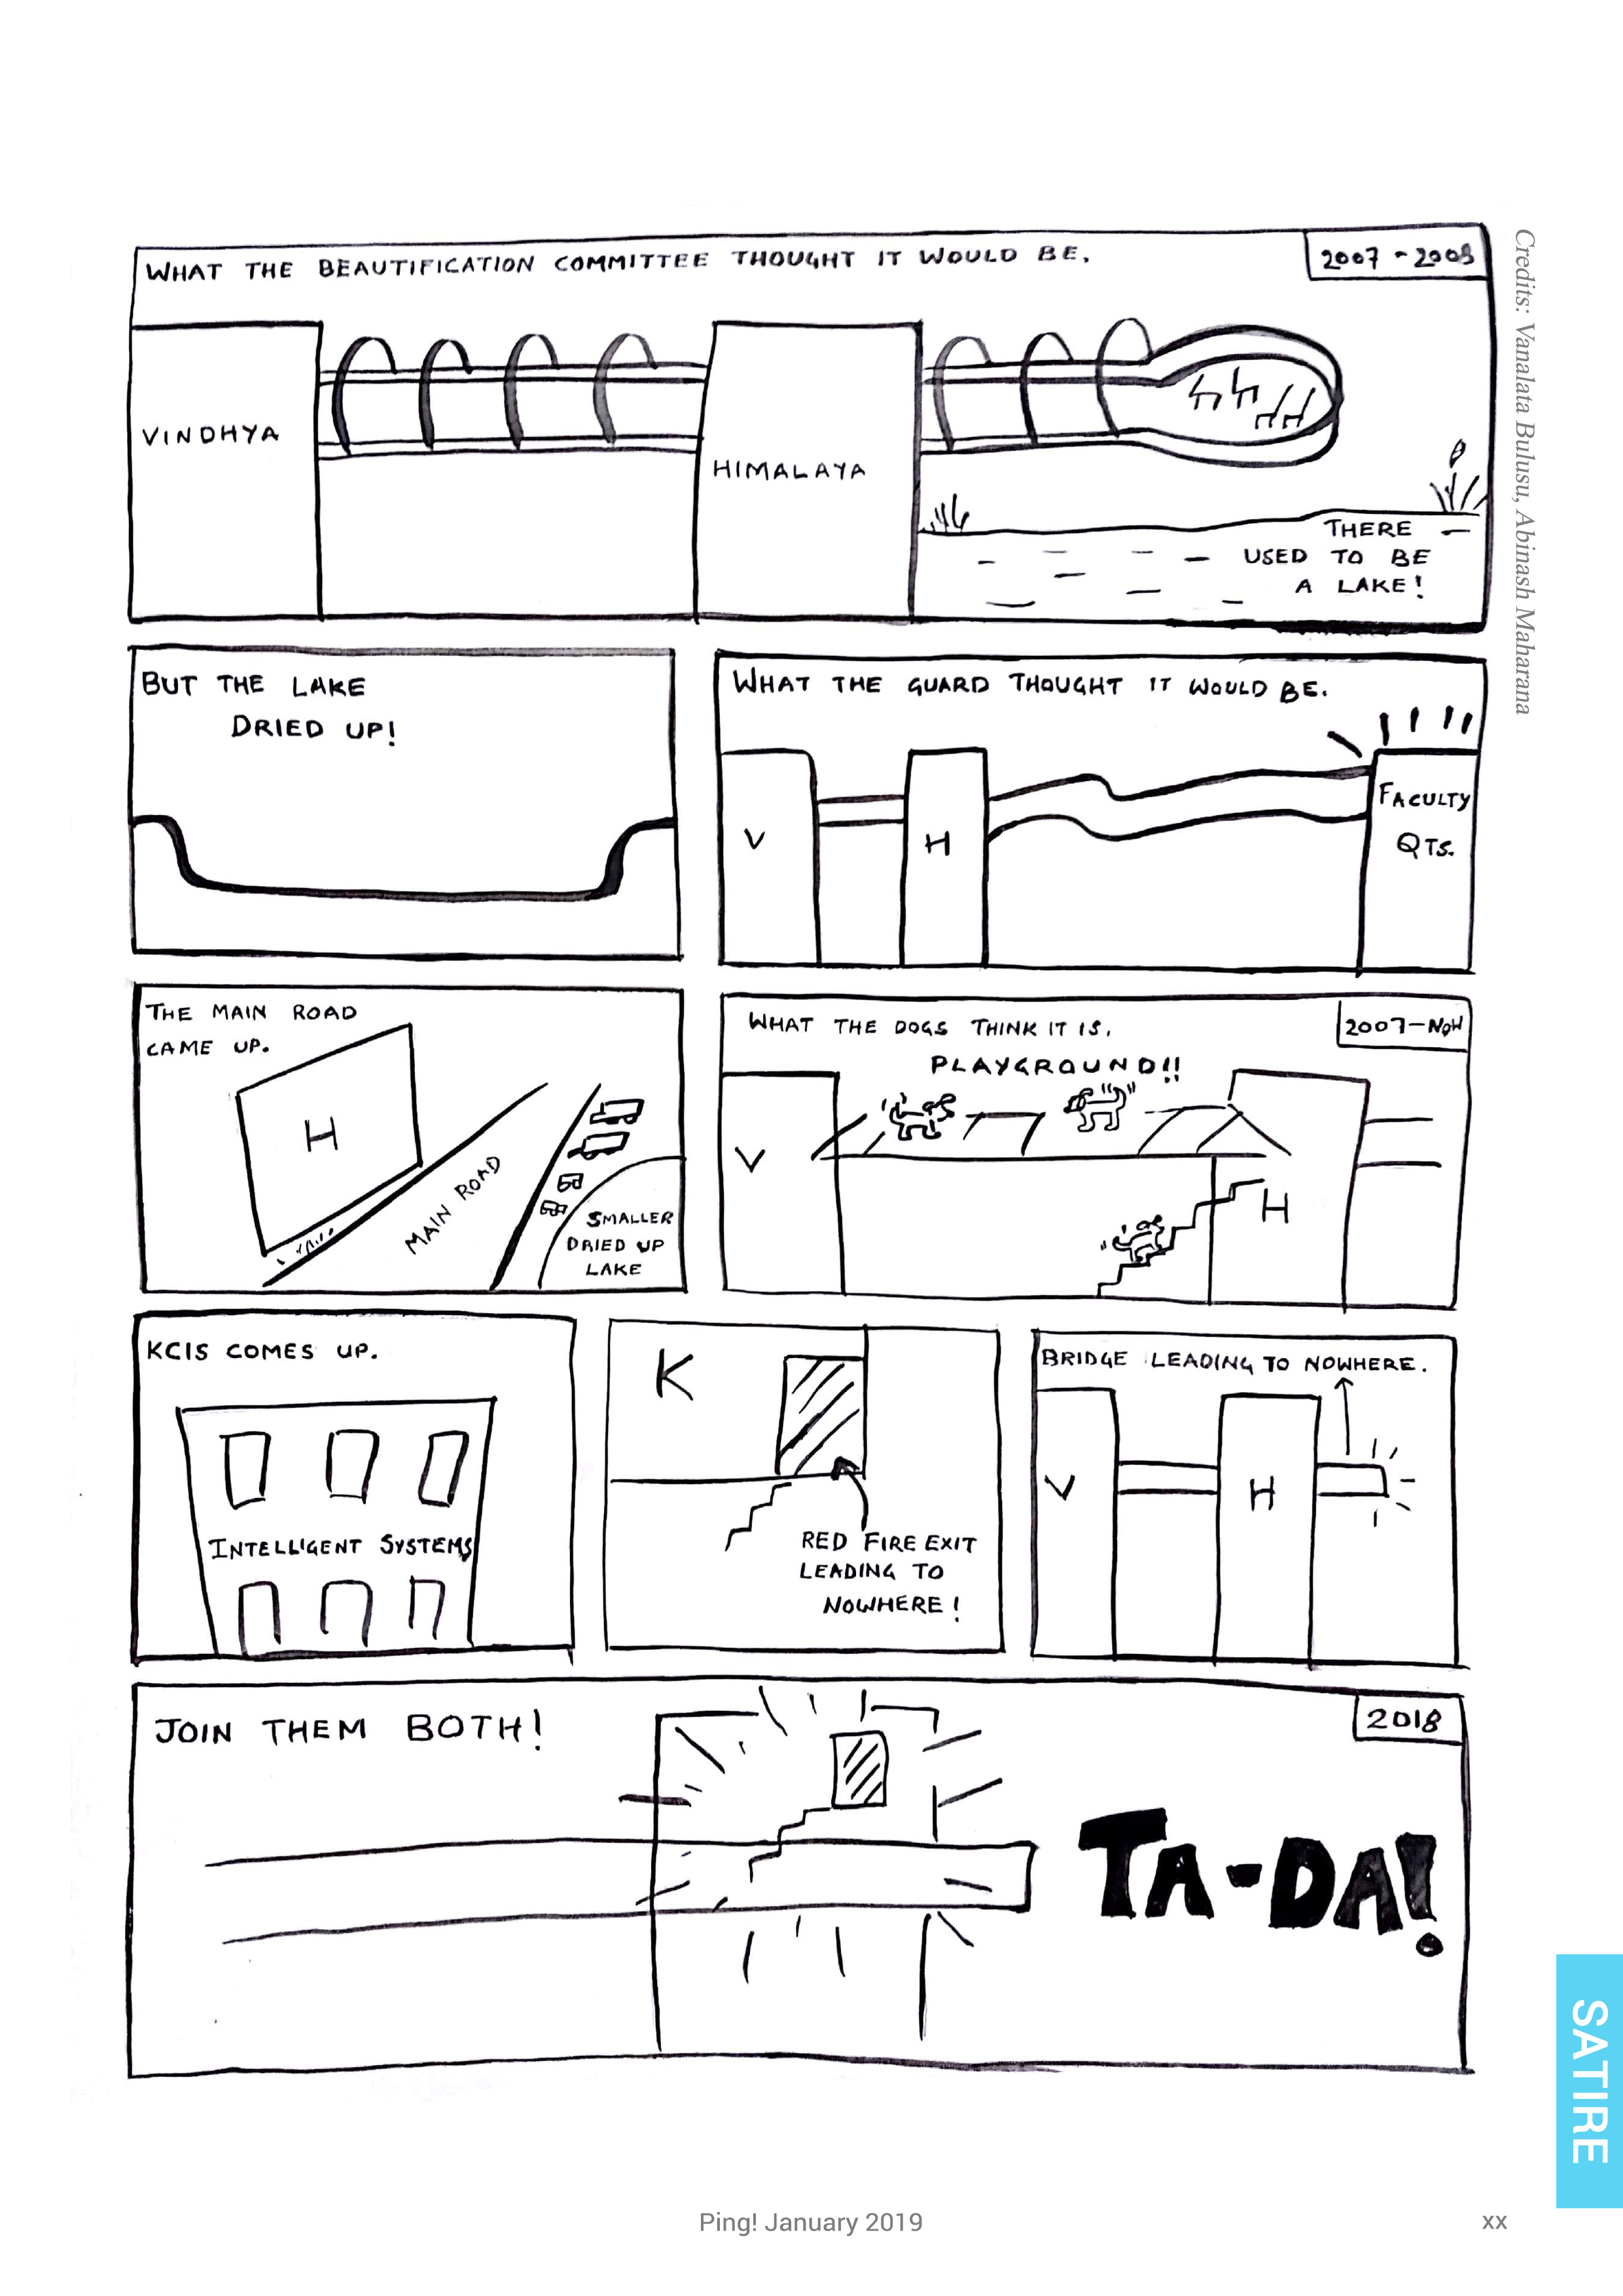 WHAT THE BEAUTIFICATION COMMITTEE THOUGHT IT WOULD BE.
2007 - 2008
VINDHYA
HIMALAYA
THERE
USED TO BE
A LAKE!
Credits: Vanalata Bulusu, Abinash Maharana
BUT THE LAKE
DRIED UP!
WHAT THE GUARD THOUGHT IT WOULD BE.
V
H
FACULTY
QTS.
THE MAIN ROAD
CAME UP.
H
MAIN ROAD
SMALLER
DRIED UP
LAKE
WHAT THE DOGS THINK IT IS.
2007-NOW
PLAYGROUND!!
V
H
KCIS COMES UP.
INTELLIGENT SYSTEMS
K
RED FIRE EXIT
LEADING TO
NOWHERE!
BRIDGE LEADING TO NOWHERE.
V
H
JOIN THEM BOTH!
2018
TA-DA!
SATIRE
Ping! January 2019
xx